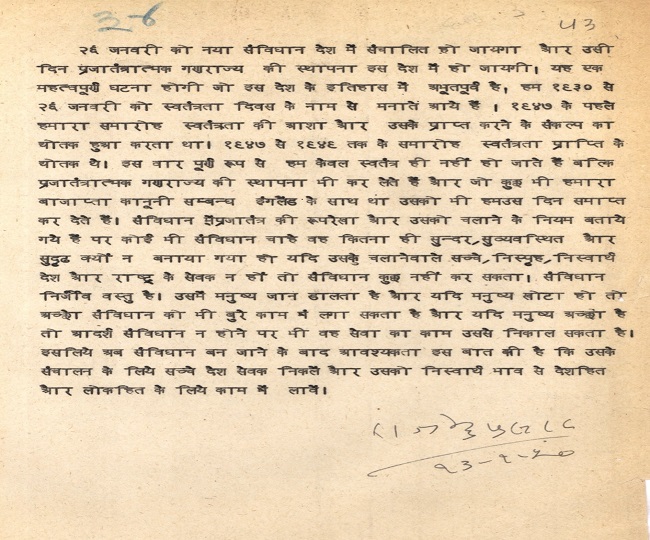 3-6
43
२६ जनवरी को नया संविधान देश में संचालित हो जायगा और उसी
दिन प्रजातंत्रात्मक गणराज्य की स्थापना इस देश में हो जायगी। यह एक
महत्वपूर्ण घटना होगी जो इस देश के इतिहास में अभूतपूर्व है, हम १९३० से
२६ जनवरी को स्वतंत्रता दिवस के नाम से मनाते आये हैं । १९४७ के पहले
हमारा समारोह स्वतंत्रता की आशा और उसके प्राप्त करने के संकल्प का
द्योतक हुआ करता था। १९४७ से १९४९ तक के समारोह स्वतंत्रता प्राप्ति के
द्योतक थे। इस वार पूर्ण रूप से हम केवल स्वतंत्र ही नहीं हो जाते हैं बल्कि
प्रजातंत्रात्मक गणराज्य की स्थापना भी कर लेते हैं और जो कुछ भी हमारा
बाजाप्ता कानूनी सम्बन्ध इंगलैंड के साथ था उसको भी हमउस दिन समाप्त
कर देते हैं। संविधान मेंप्रजातंत्र की रूपरेखा और उसको चलाने के नियम बताये
गये हैं पर कोई भी संविधान चाहे वह कितना ही सुन्दर,सुव्यवस्थित और
सुदृढ़ क्यों न बनाया गया हो यदि उसके चलानेवाले सच्चे,निस्पृह,निस्वार्थ
देश और राष्ट्र के सेवक न हों तो संविधान कुछ नहीं कर सकता। संविधान
निर्जीव वस्तु है। उसमें मनुष्य जान डालता है और यदि मनुष्य खोटा हो तो
अच्छे संविधान को भी बुरे काम में लगा सकता है और यदि मनुष्य अच्छा है
तो आदर्श संविधान न होने पर भी वह सेवा का काम उससे निकाल सकता है।
इसलिये अब संविधान बन जाने के बाद आवश्यकता इस बात की है कि उसके
संचालन के लिये सच्चे देश सेवक निकलें और उसको निस्वार्थ भाव से देशहित
और लोकहित के लिये काम में लावें।
राजेन्द्र प्रसाद
२३-१-५०